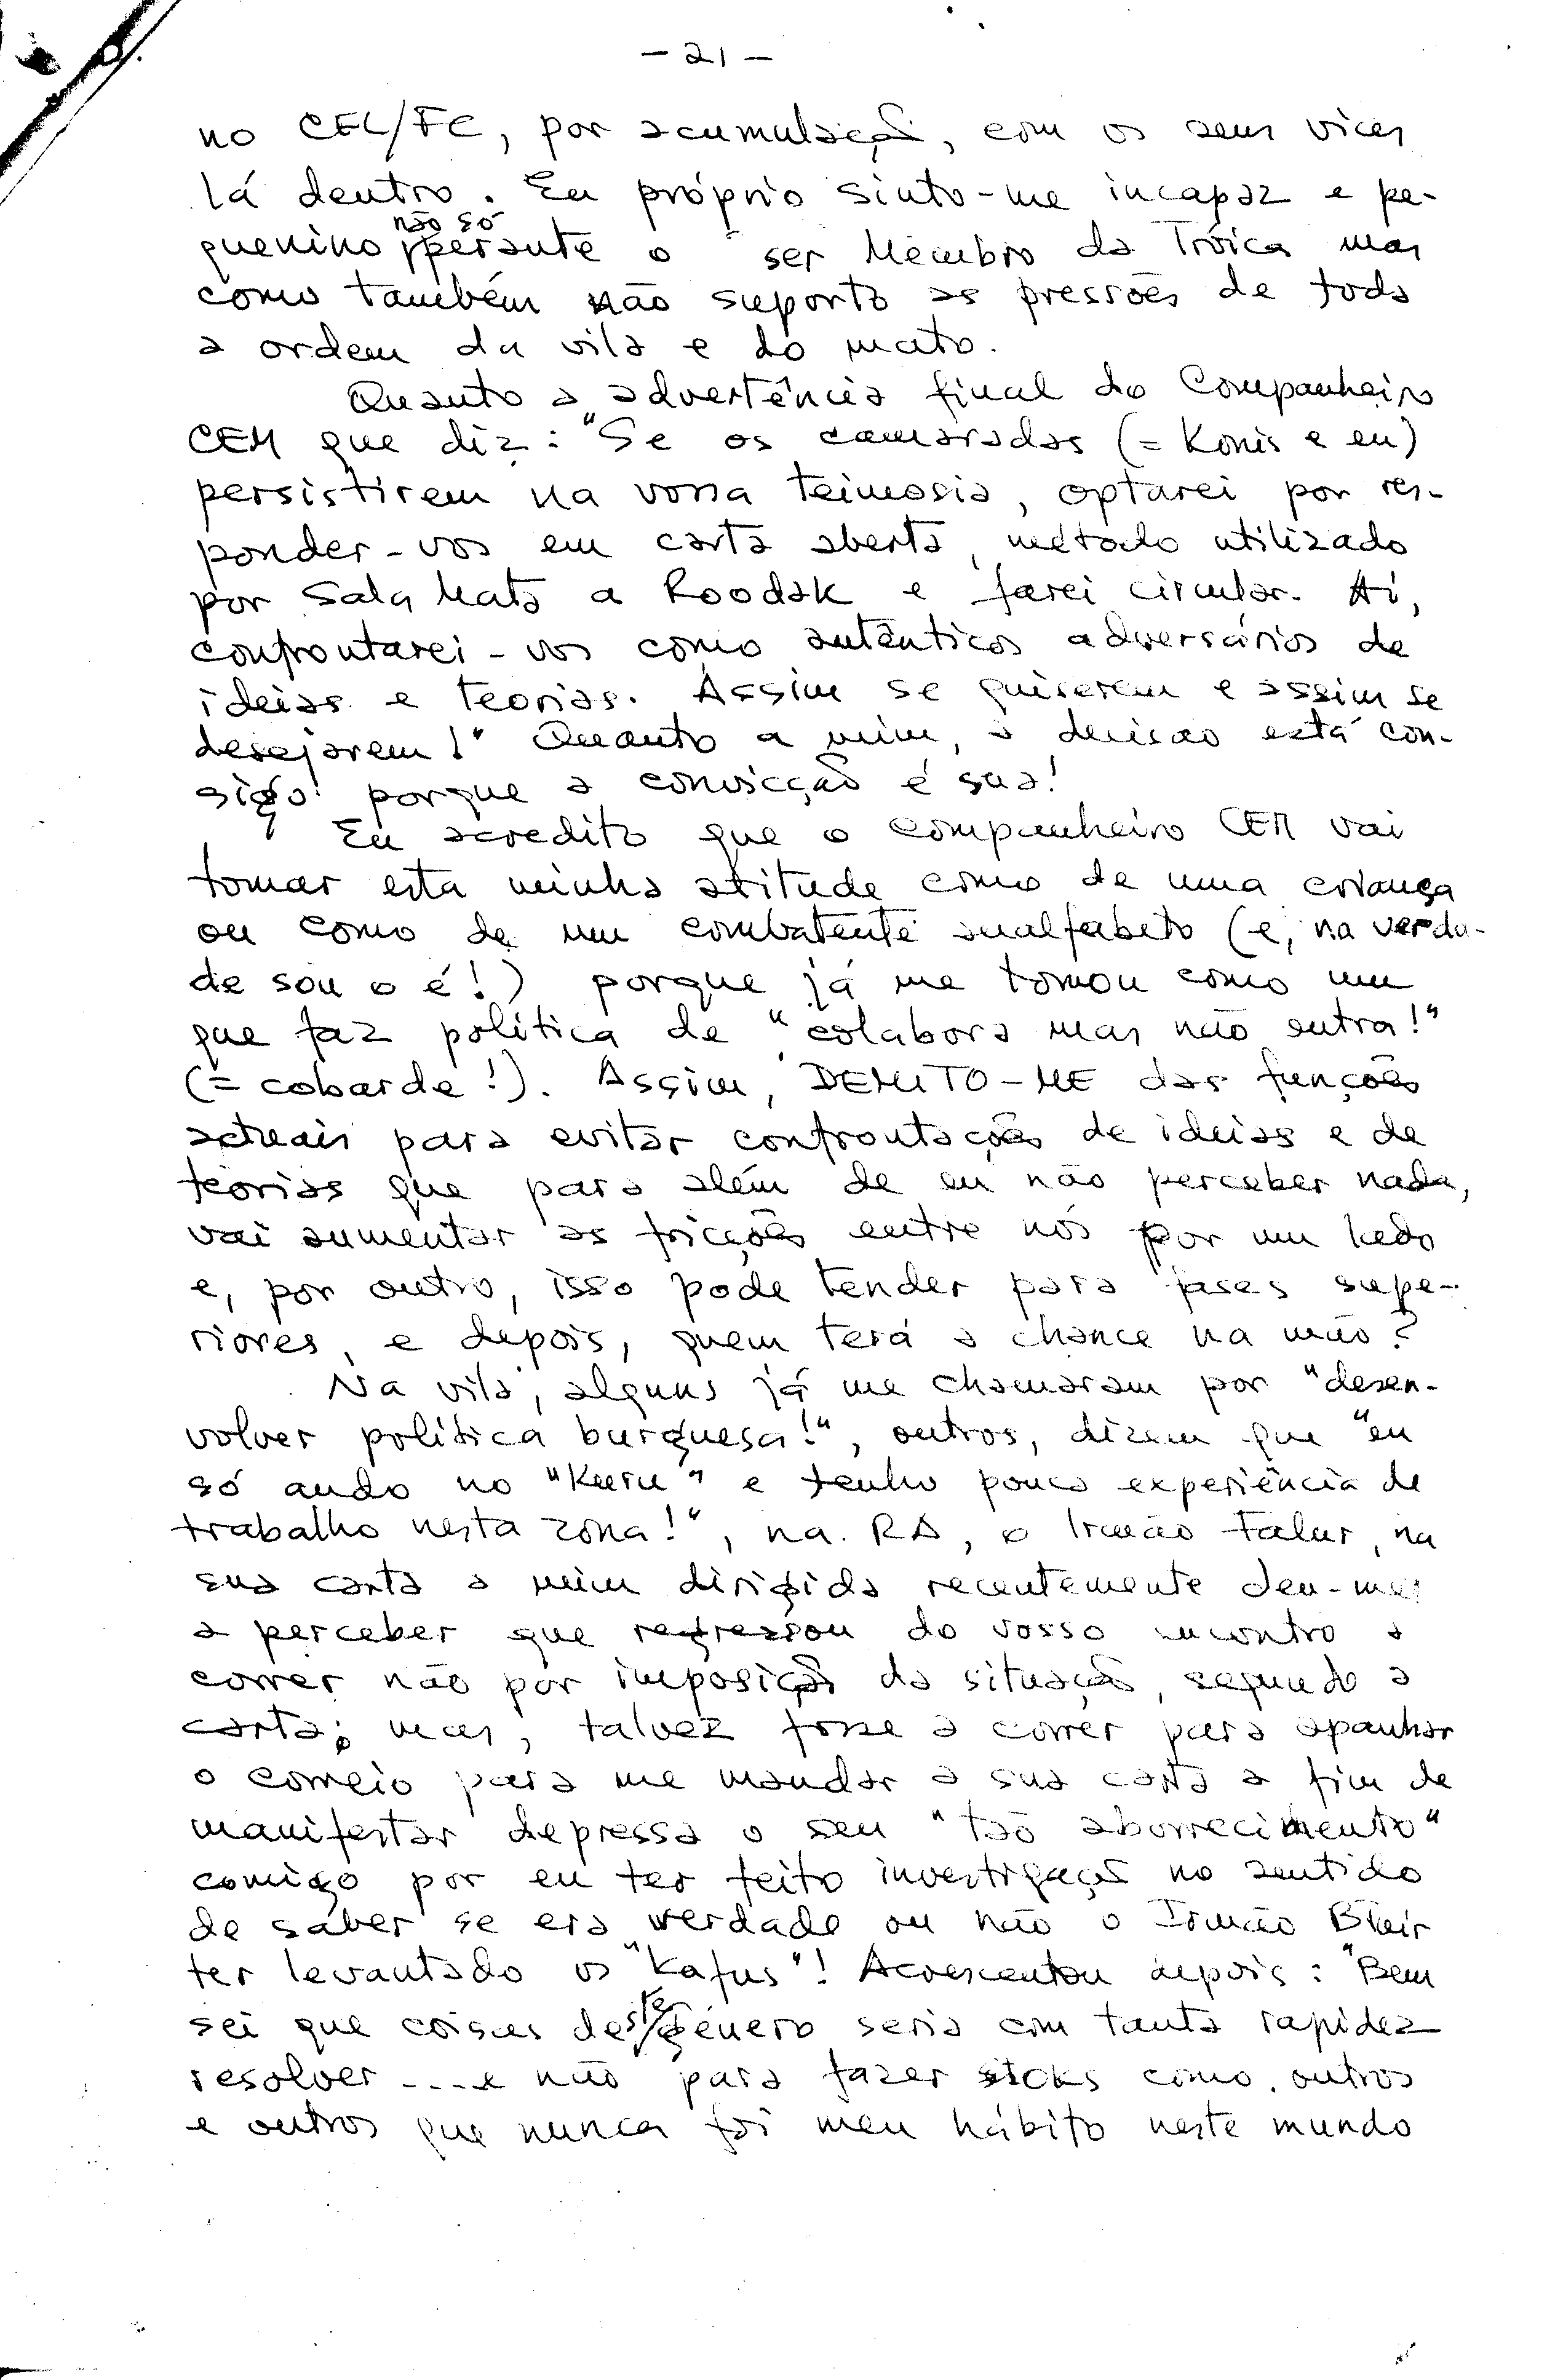 - 21 -
no CEL/FC, por acumulação, com os seus vices
lá dentro. Eu próprio sinto-me incapaz e pe-
quenino não só perante o ser Membro da Tróica mas
como também não suporto as pressões de toda
a ordem da vila e do mato.
Quanto a advertência final do Companheiro
CEM que diz: "Se os camaradas (= Konis e eu)
persistirem na vossa teimosia, optarei por res-
ponder-vos em carta aberta, método utilizado
por Sala Mata a Roodak e farei circular. Aí,
confrontarei-vos como autênticos adversários de
ideias e teorias. Assim se quiserem e assim se
desejarem!" Quanto a mim, a decisão está con-
sigo porque a convicção é sua!
Eu acredito que o companheiro CEM vai
tomar esta minha atitude como de uma criança
ou como de um combatente analfabeto (e, na verda-
de sou o é!) porque já me tomou como um
que faz política de "colabora mas não entra!"
(= cobarde!). Assim, DEMITO-ME das funções
actuais para evitar confrontações de ideias e de
teorias que para além de eu não perceber nada,
vai aumentar as fricções entre nós por um lado
e, por outro, isso pode tender para fases supe-
riores, e depois, quem terá a chance na mão?
Na vila, alguns já me chamaram por "desen-
volver política burguesa!", outros, dizem que "eu
só ando no "Keeru" e tenho pouca experiência de
trabalho nesta zona!", na RD, o Irmão Falur, na
sua carta a mim dirigida recentemente deu-me
a perceber que regressou do vosso encontro a
correr não por imposição da situação, segundo a
carta; mas, talvez fosse a correr para apanhar
o correio para me mandar a sua carta a fim de
manifestar depressa o seu "tão aborrecimento"
comigo por eu ter feito investigação no sentido
de saber se era verdade ou não o Irmão Blair
ter levantado os "Kafus"! Acrescentou depois: "Bem
sei que coisas deste género seria com tanta rapidez
resolver .... e não para fazer stoks como outros
e outros que nunca foi meu hábito neste mundo